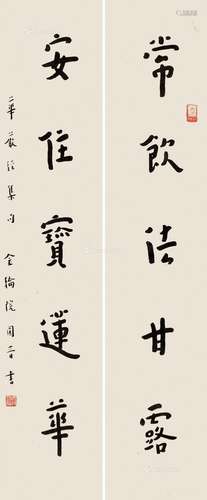 常飲法甘露
安住寶蓮華
華嚴經集句 金輪院同音書